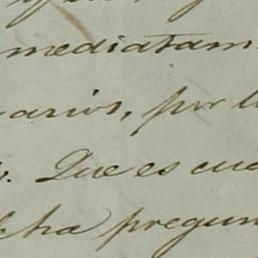 mediatam
arios, por l
. Que es cua
cha pregun